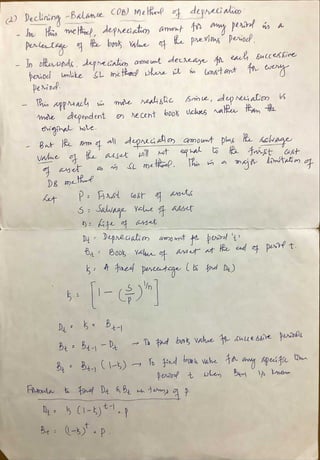 (2) Declining - Balance (DB) Method of depreciation
- In this method, depreciation amount for any period is a
percentage of the book value of the previous period.
- In otherwords, depreciation amount decrease for each successive
period unlike SL method where it is constant for every
period.
- This approach is more realistic since, depreciation is
more dependent on recent book values rather than the
original
- But the sum of all depreciation amount plus the salvage
value of the asset will not equal to the first cost
of asset as in SL method. This is a major limitation of
DB method
Let P = First cost of assets
S = Salvage value of asset
n = Life of asset
Dt = Depreciation amount for period 't'
Bt = Book value of asset at the end of period t.
k = A fixed percentage (to find Dt)
k = [1 - (S/P)^1/n]
Dt = k × Bt-1
Bt = Bt-1 - Dt → To find book value for successive periods
Bt = Bt-1 (1-k) → To find book value for any specific time
period t when Bt-1 is known
Formula to find Dt & Bt in terms of P
Dt = k (1-k)^t-1 . P
Bt = (1-k)^t . P